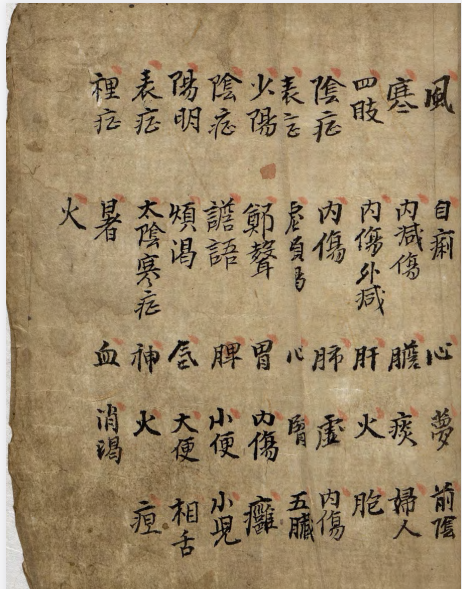 風 自痢 心 夢 前陰
寒 内減傷 膽 痰 婦人
四肢 内傷外減 肝 火 胞
陰症 内傷 肺 虛 内傷
表 心 腎 五臟
少陽 鄭聲 胃 内傷 癰
陰症 譫語 脾 小便 小児
陽明 煩渴 氣 大便 相舌
表症 太陰寒症 神 火
裡症 暑 血 消渴
火